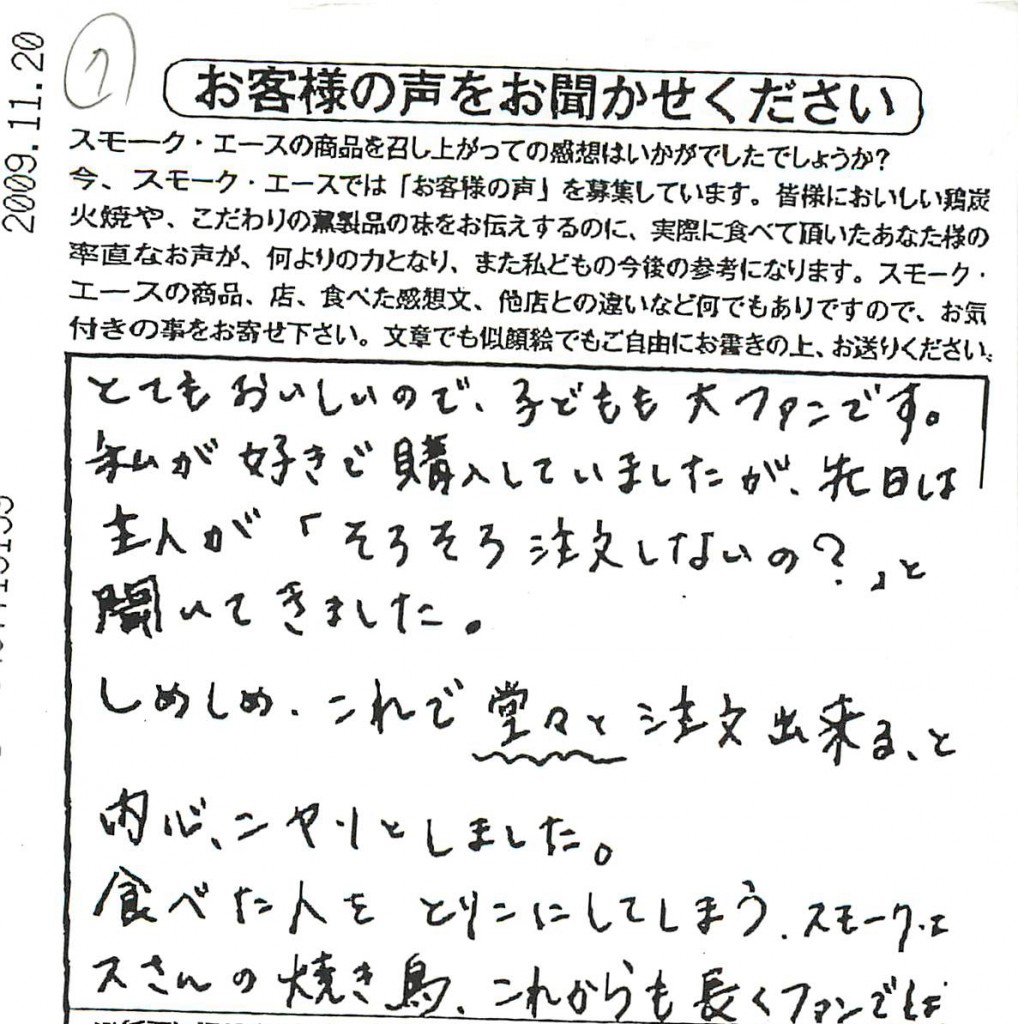 2009.11.20
お客様の声をお聞かせください
スモーク・エースの商品を召し上がっての感想はいかがでしたでしょうか?
今、スモーク・エースでは「お客様の声」を募集しています。皆様においしい鶏炭
火焼や、こだわりの薫製品の味をお伝えするのに、実際に食べて頂いたあなた様の
率直なお声が、何よりの力となり、また私どもの今後の参考になります。スモーク・
エースの商品、店、食べた感想文、他店との違いなど何でもありですので、お気
付きの事をお寄せ下さい。文章でも似顔絵でもご自由にお書きの上、お送りください。
とてもおいしいので、子どもも大ファンです。
私が好きで購入していましたが、先日は
主人が「そろそろ注文しないの?」と
聞いてきました。
しめしめ、これで堂々と注文出来る、と
内心、ニヤリとしました。
食べた人をとりこにしてしまう、スモーク・エ
スさんの焼き鳥、これからも長くファンでいま